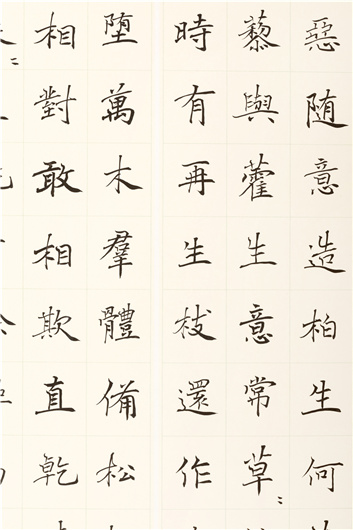 惡随意造柏生何
藜與藿生意常草〻
時有再生枝還作
堕萬木羣體備松
相對敢相欺直乾